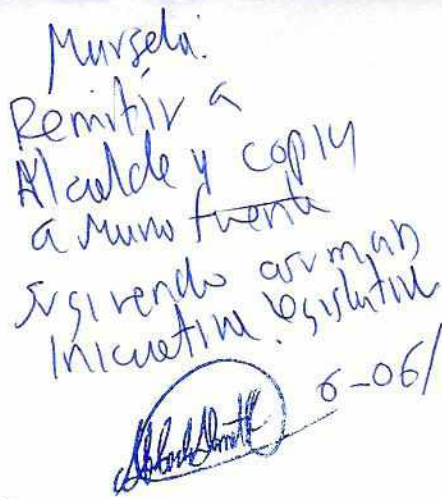 Marsela:
Remitir a
Alcalde y copia
a Muno fuente
sugirendo arman
Iniciativa legislativa.
6-06/